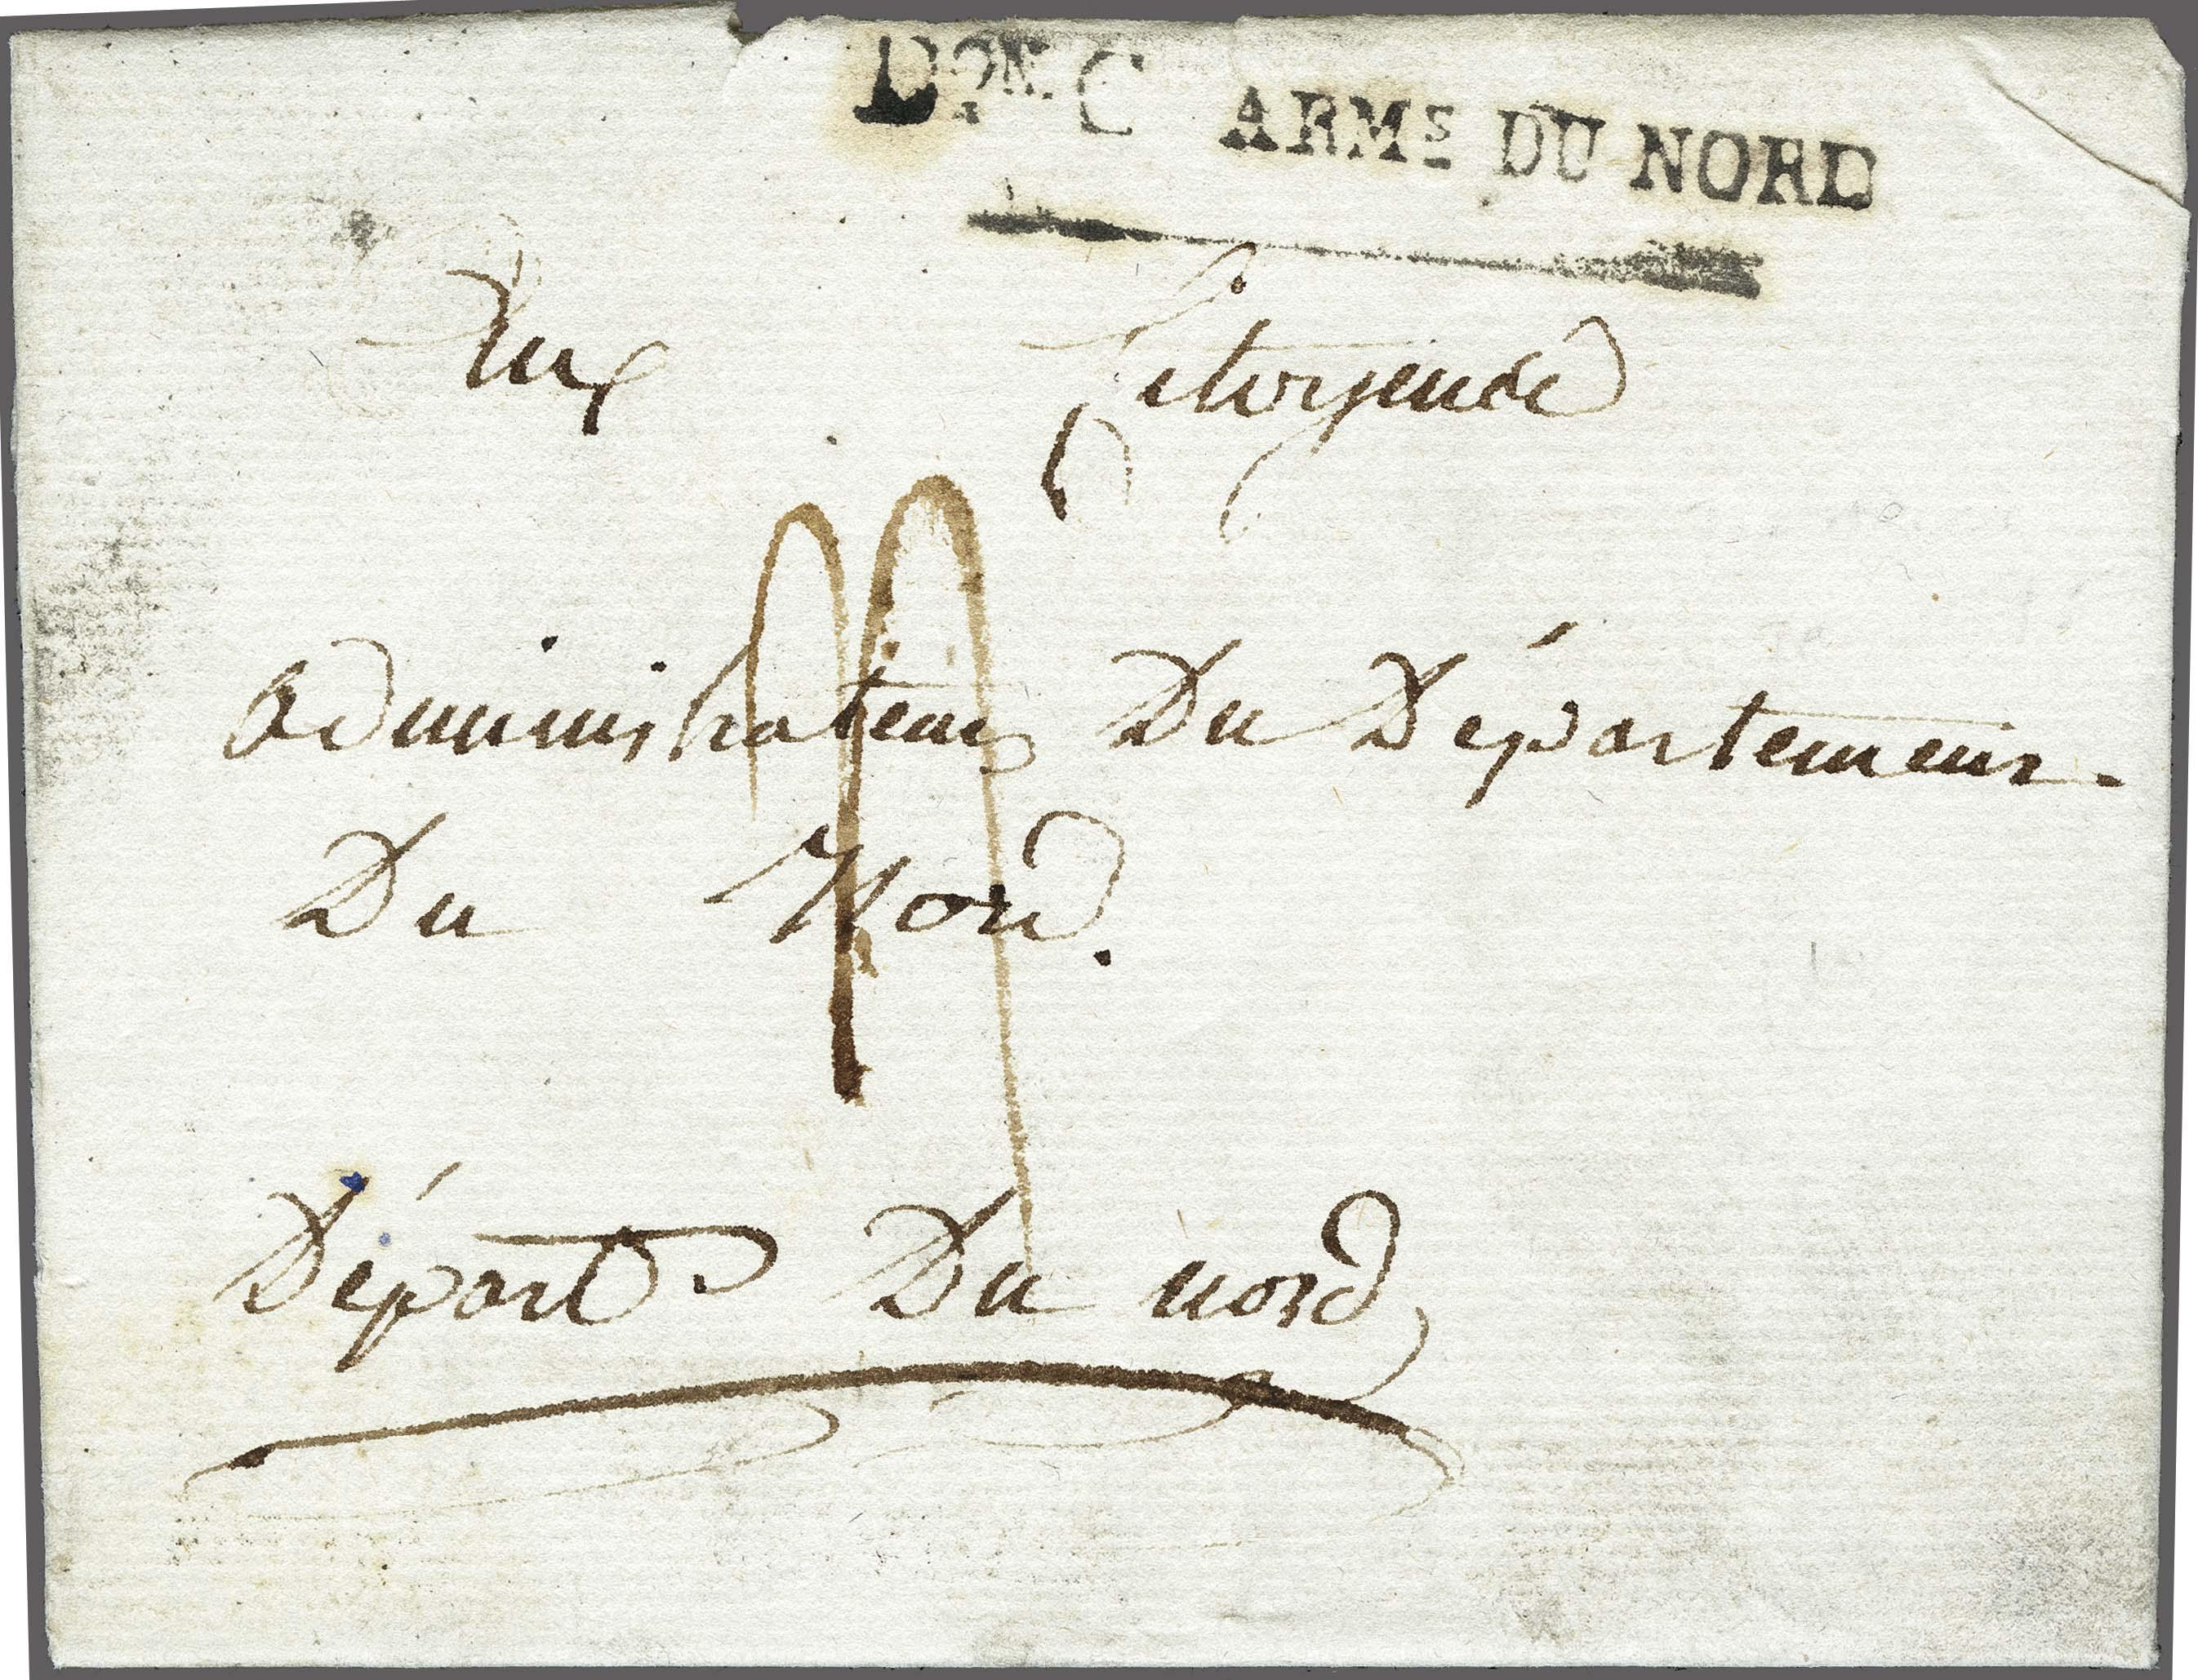 DON. C ARME DU NORD
Aux Citoyens
administrateurs Du Département
Du Nord.
Départ. Du nord